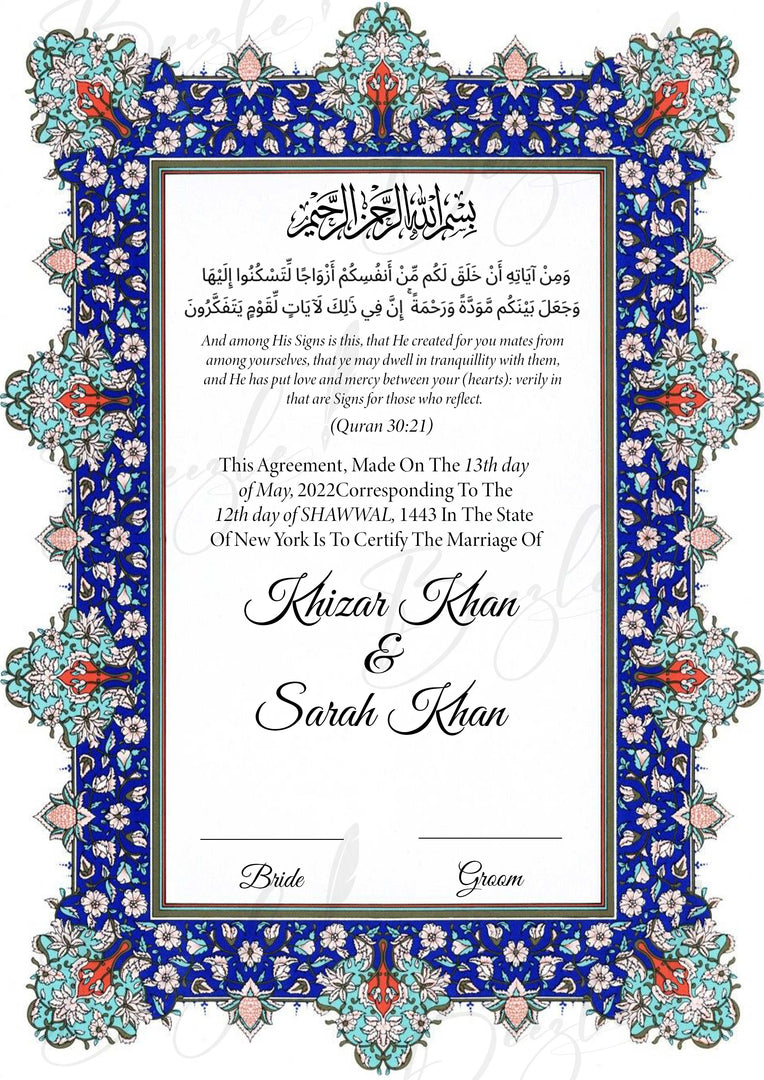 بِسْمِ اللهِ الرَّحْمٰنِ الرَّحِيْمِ
وَمِنْ آيَاتِهِ أَنْ خَلَقَ لَكُم مِّنْ أَنفُسِكُمْ أَزْوَاجًا لِّتَسْكُنُوا إِلَيْهَا
وَجَعَلَ بَيْنَكُم مَّوَدَّةً وَرَحْمَةً ۚ إِنَّ فِي ذَٰلِكَ لَآيَاتٍ لِّقَوْمٍ يَتَفَكَّرُونَ
And among His Signs is this, that He created for you mates from
among yourselves, that ye may dwell in tranquillity with them,
and He has put love and mercy between your (hearts): verily in
that are Signs for those who reflect.
(Quran 30:21)
This Agreement, Made On The 13th day
of May, 2022Corresponding To The
12th day of SHAWWAL, 1443 In The State
Of New York Is To Certify The Marriage Of
Khizar Khan
&
Sarah Khan
Bride
Groom